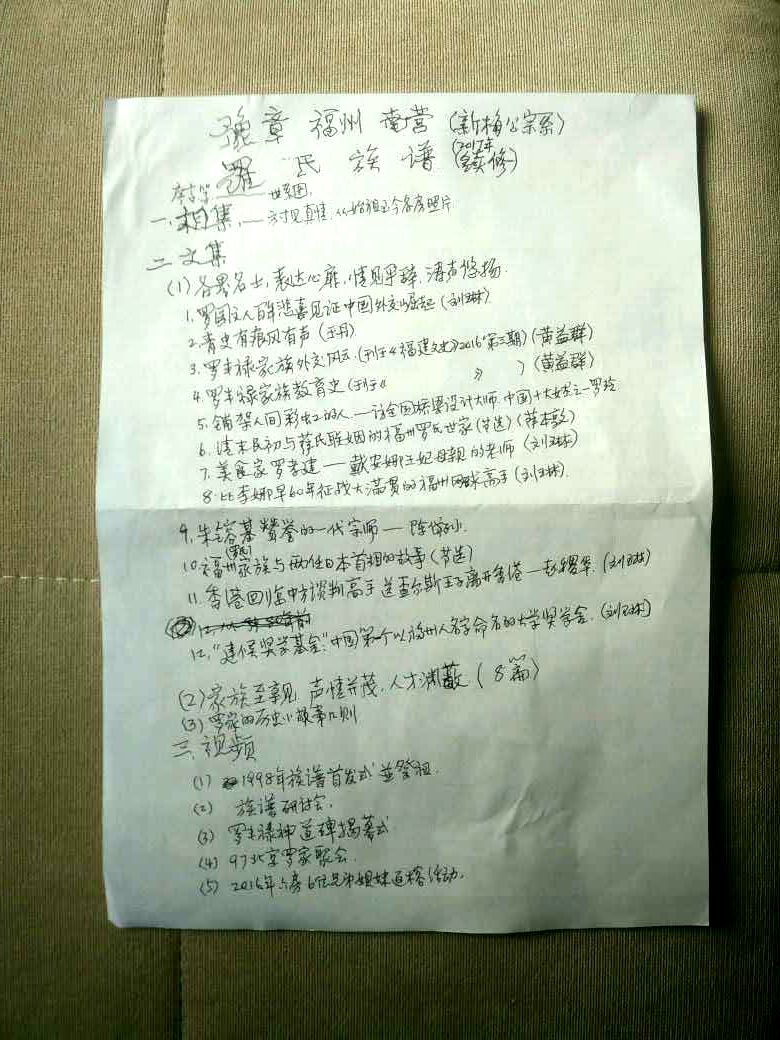 豫章 福州 南营 (新梅公宗系)
羅 氏 族 谱 (2017年续修)
世系图
一、相集,——方寸见真情,从始祖至今各房照片
二、文集
(1) 各界名士,表达心扉,情见乎辞,涛声悠扬.
1. 罗国文人百年悲喜见证中国外交崛起 (刘琳)
2. 青史有痕风有声 (王丹)
3. 罗丰禄家族外交风云 (刊于《福建文史》2016'第三期) (黄益群)
4. 罗丰禄家族教育史 (刊于《 》 ) (黄益群)
5. 铺架人间彩虹的人——访全国桥梁设计大师 中国十大女杰之一罗玲
6. 清末民初与薛氏联姻的福州罗氏世家 (节选) (薛本敦)
7. 美食家罗孝建——戴安娜王妃母亲的老师 (刘琳)
8. 比李娜早60年征战大满贯的福州网球高手 (刘琳)
9. 朱镕基赞誉的一代宗师——陈
10. 福州(罗氏)家族与两任日本首相的故事 (节选)
11. 香港回归中方谈判高手送查尔斯王子离开香港—赵稷华. (刘琳)
12. "建侯奖学基金":中国第一个以福州人名字命名的大学奖学金. (刘琳)
(2) 家族至亲见,声情并茂,人才渊薮 (8篇)
(3) 罗家的历史小故事几则
三、视频
(1) 1998年族谱首发式並祭祖.
(2) 族谱研讨会.
(3) 罗丰禄神道碑揭幕式
(4) 97北京罗家聚会.
(5) 2016年六房6位兄弟姐妹返榕活动.